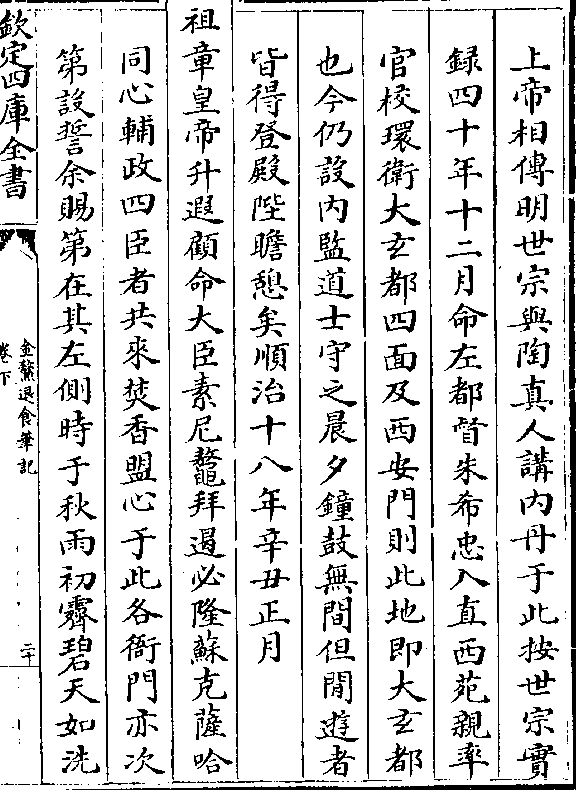 上帝相傳明世宗與陶真人講內丹于此按世宗實
錄四十年十二月命左都督朱希忠入直西苑親率
官校環衛大玄都四面及西安門則此地即大玄都
也今仍設內監道士守之晨夕鐘鼓無間但閒遊者
皆得登殿陛瞻憩矣順治十八年辛丑正月
祖章皇帝升遐顧命大臣素尼鼇拜遏必隆蘇克薩哈
同心輔政四臣者共來焚香盟心于此各衙門亦次
第設誓余賜第在其左側時于秋雨初霽碧天如洗
欽定四庫全書
金鰲退食筆記
卷下
二十